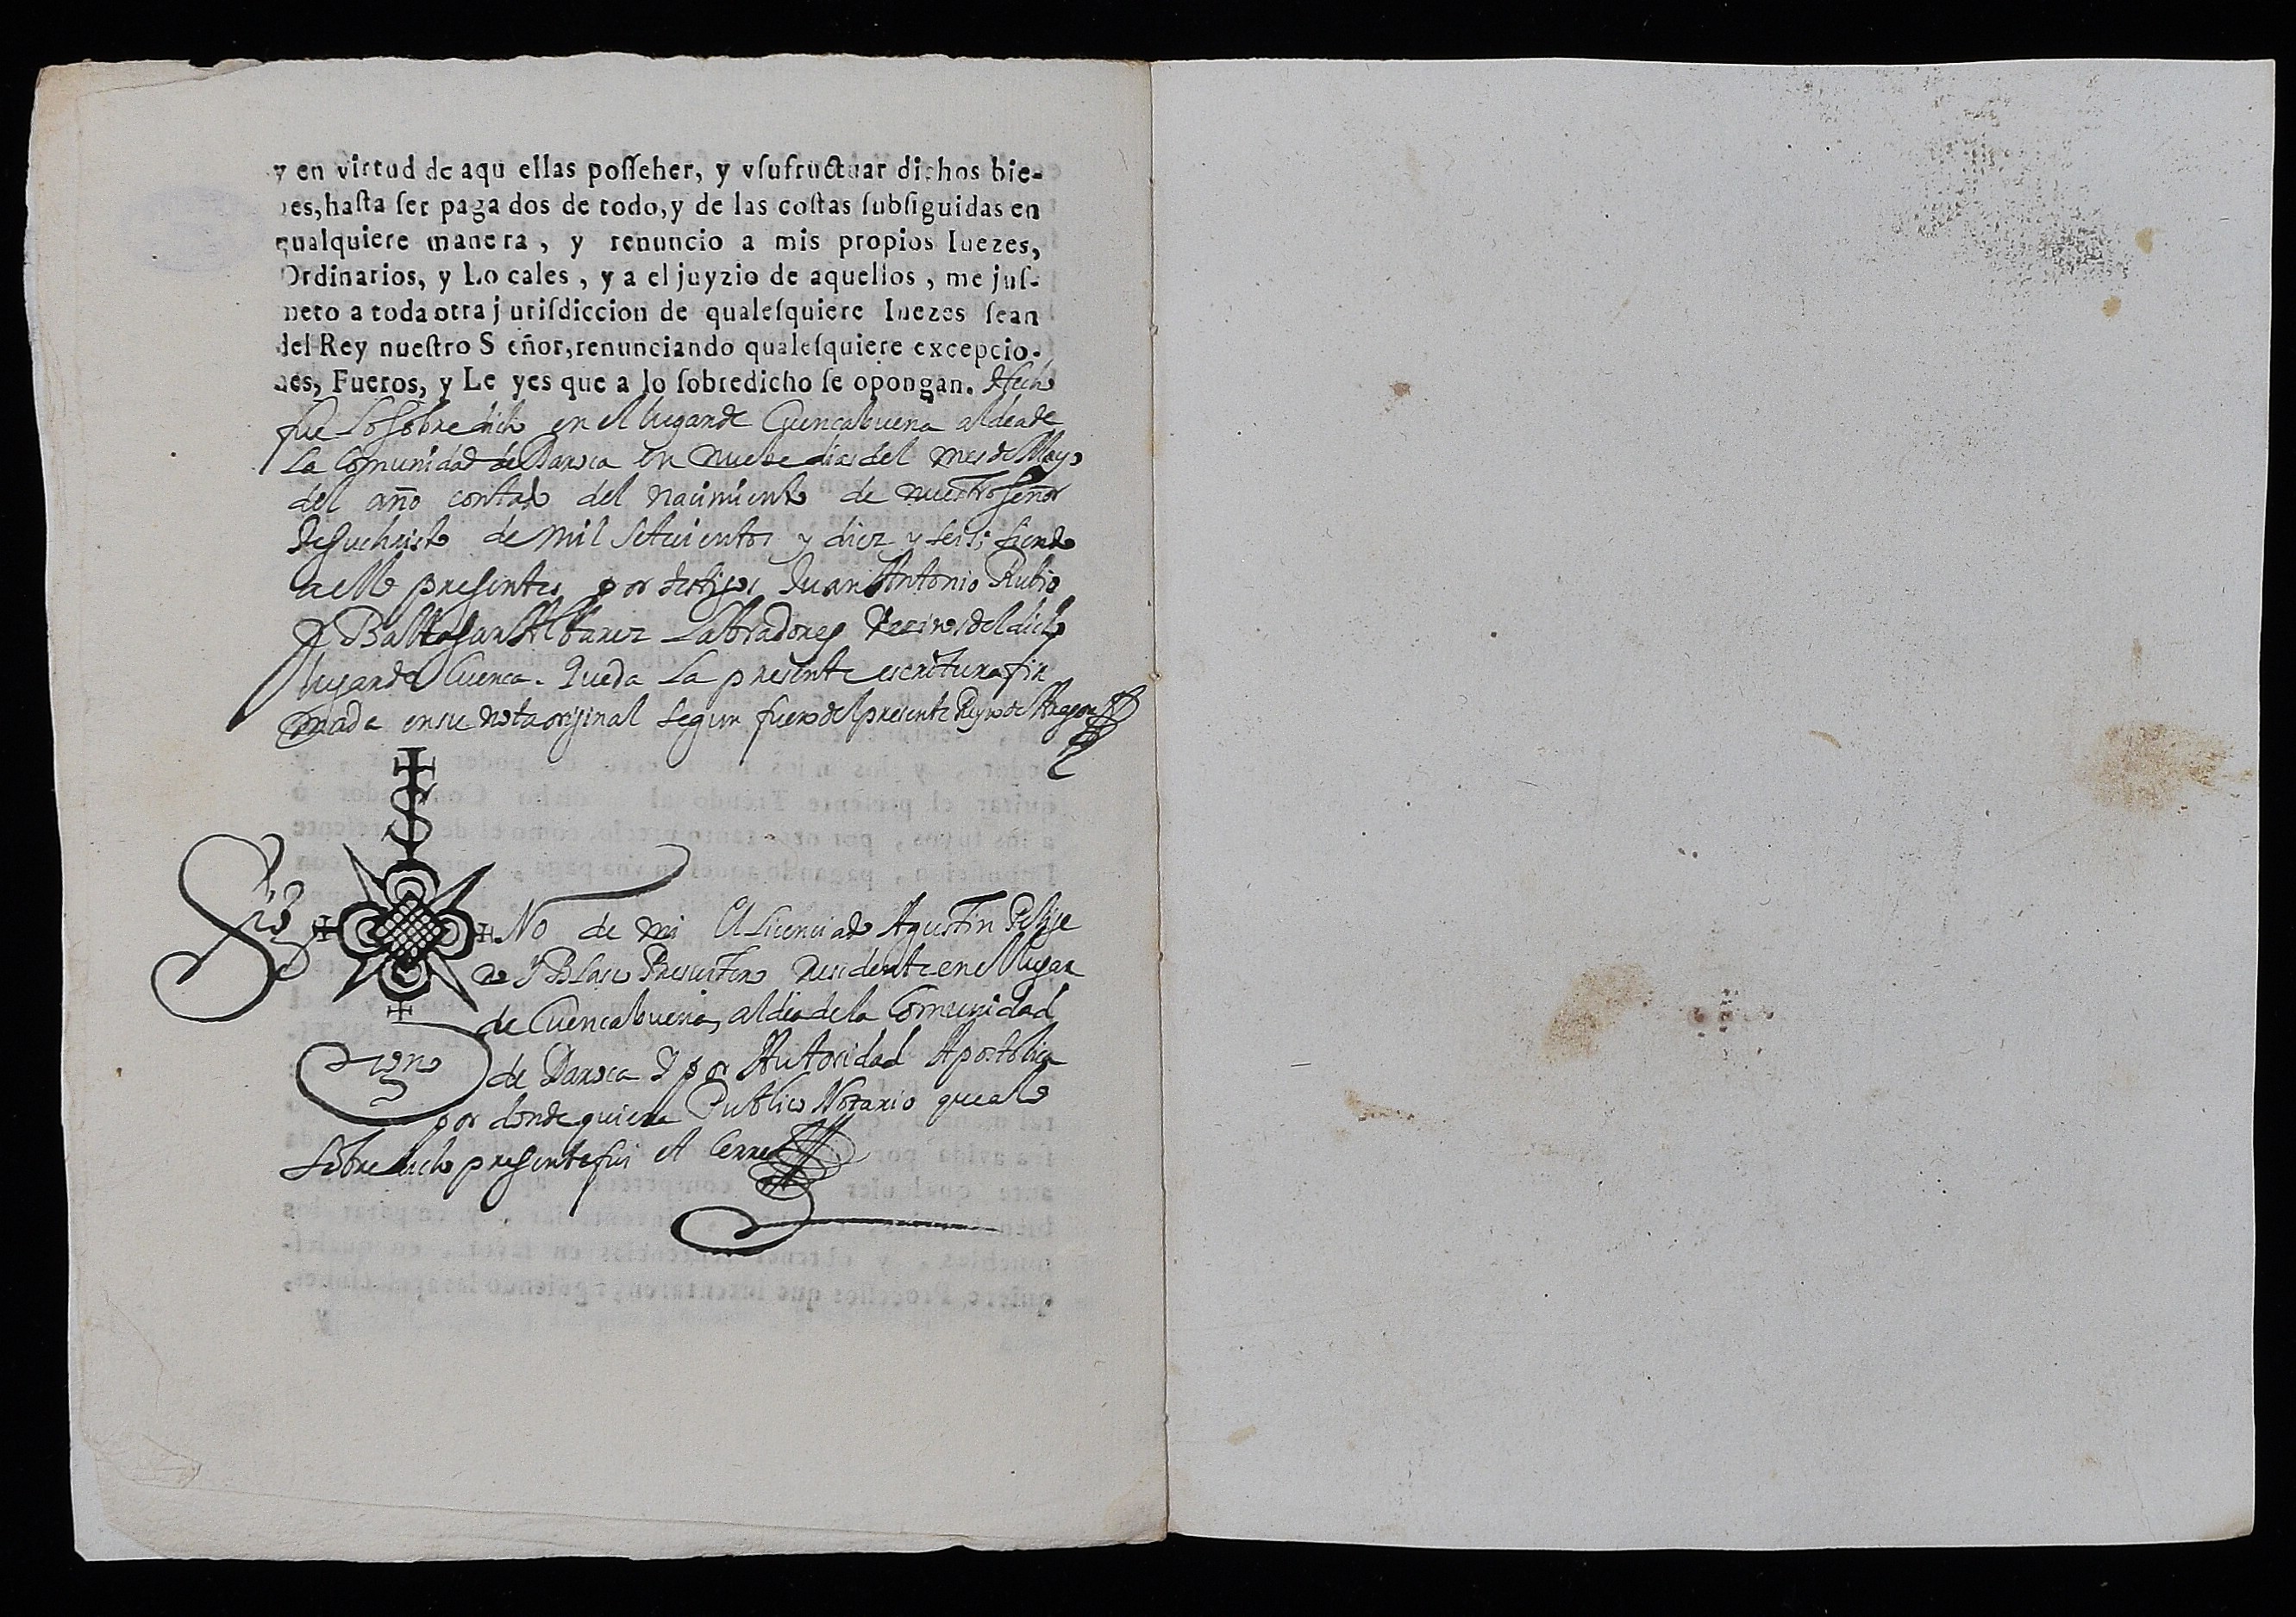 y en virtud de aqu ellas poſſeher, y vſufructuar dichos bie-
nes, haſta ſer paga dos de todo, y de las coſtas ſubſiguidas en
qualquiere mane ra, y renuncio a mis propios Iuezes,
Ordinarios, y Lo cales, y a el juyzio de aquellos, me juſ-
meto a toda otra j uriſdiccion de qualeſquiere Iuezes ſean
del Rey nueſtro S eñor, renunciando qualeſquiere excepcio-
nes, Fueros, y Le yes que a lo ſobredicho ſe opongan. Hecho
fue Lo sobredicho en el lugar de Cuencabuena aldea de
La Comunidad de Daroca en nuebe dias del mes de Mayo
del año contado del nacimiento de nuestro Señor
Jesuchristo de mil setecientos y diez y seis; siendo
a ello presentes por testigos Juan Antonio Rubio
y Baltasar Albarez Labradores Vezinos del dicho
lugar de Cuenca. Queda La presente escritura fir
mada en su nota original segun fuero del presente Reyno de Aragon
Sig No de mi El Licenciado Agustin
no y Blasco Presvitero Residente en el lugar
de Cuencabuena, aldea de la Comunidad
de Daroca y por Autoridad Apostolica
por donde quiera Publico Notario que a lo
sobredicho presente fui et Cerre